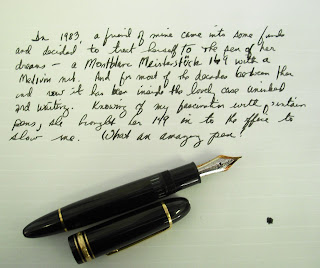 In 1983, a friend of mine came into some funds
and decided to treat herself to the pen of her
dreams - a Montblanc Meisterstück 149 with a
Medium nib. And for most of the decades between then
and now it has been inside the lovely case uninked
and waiting. Knowing of my fascination with certain
pens, she brought her 149 in to the office to
show me. What an amazing pen!